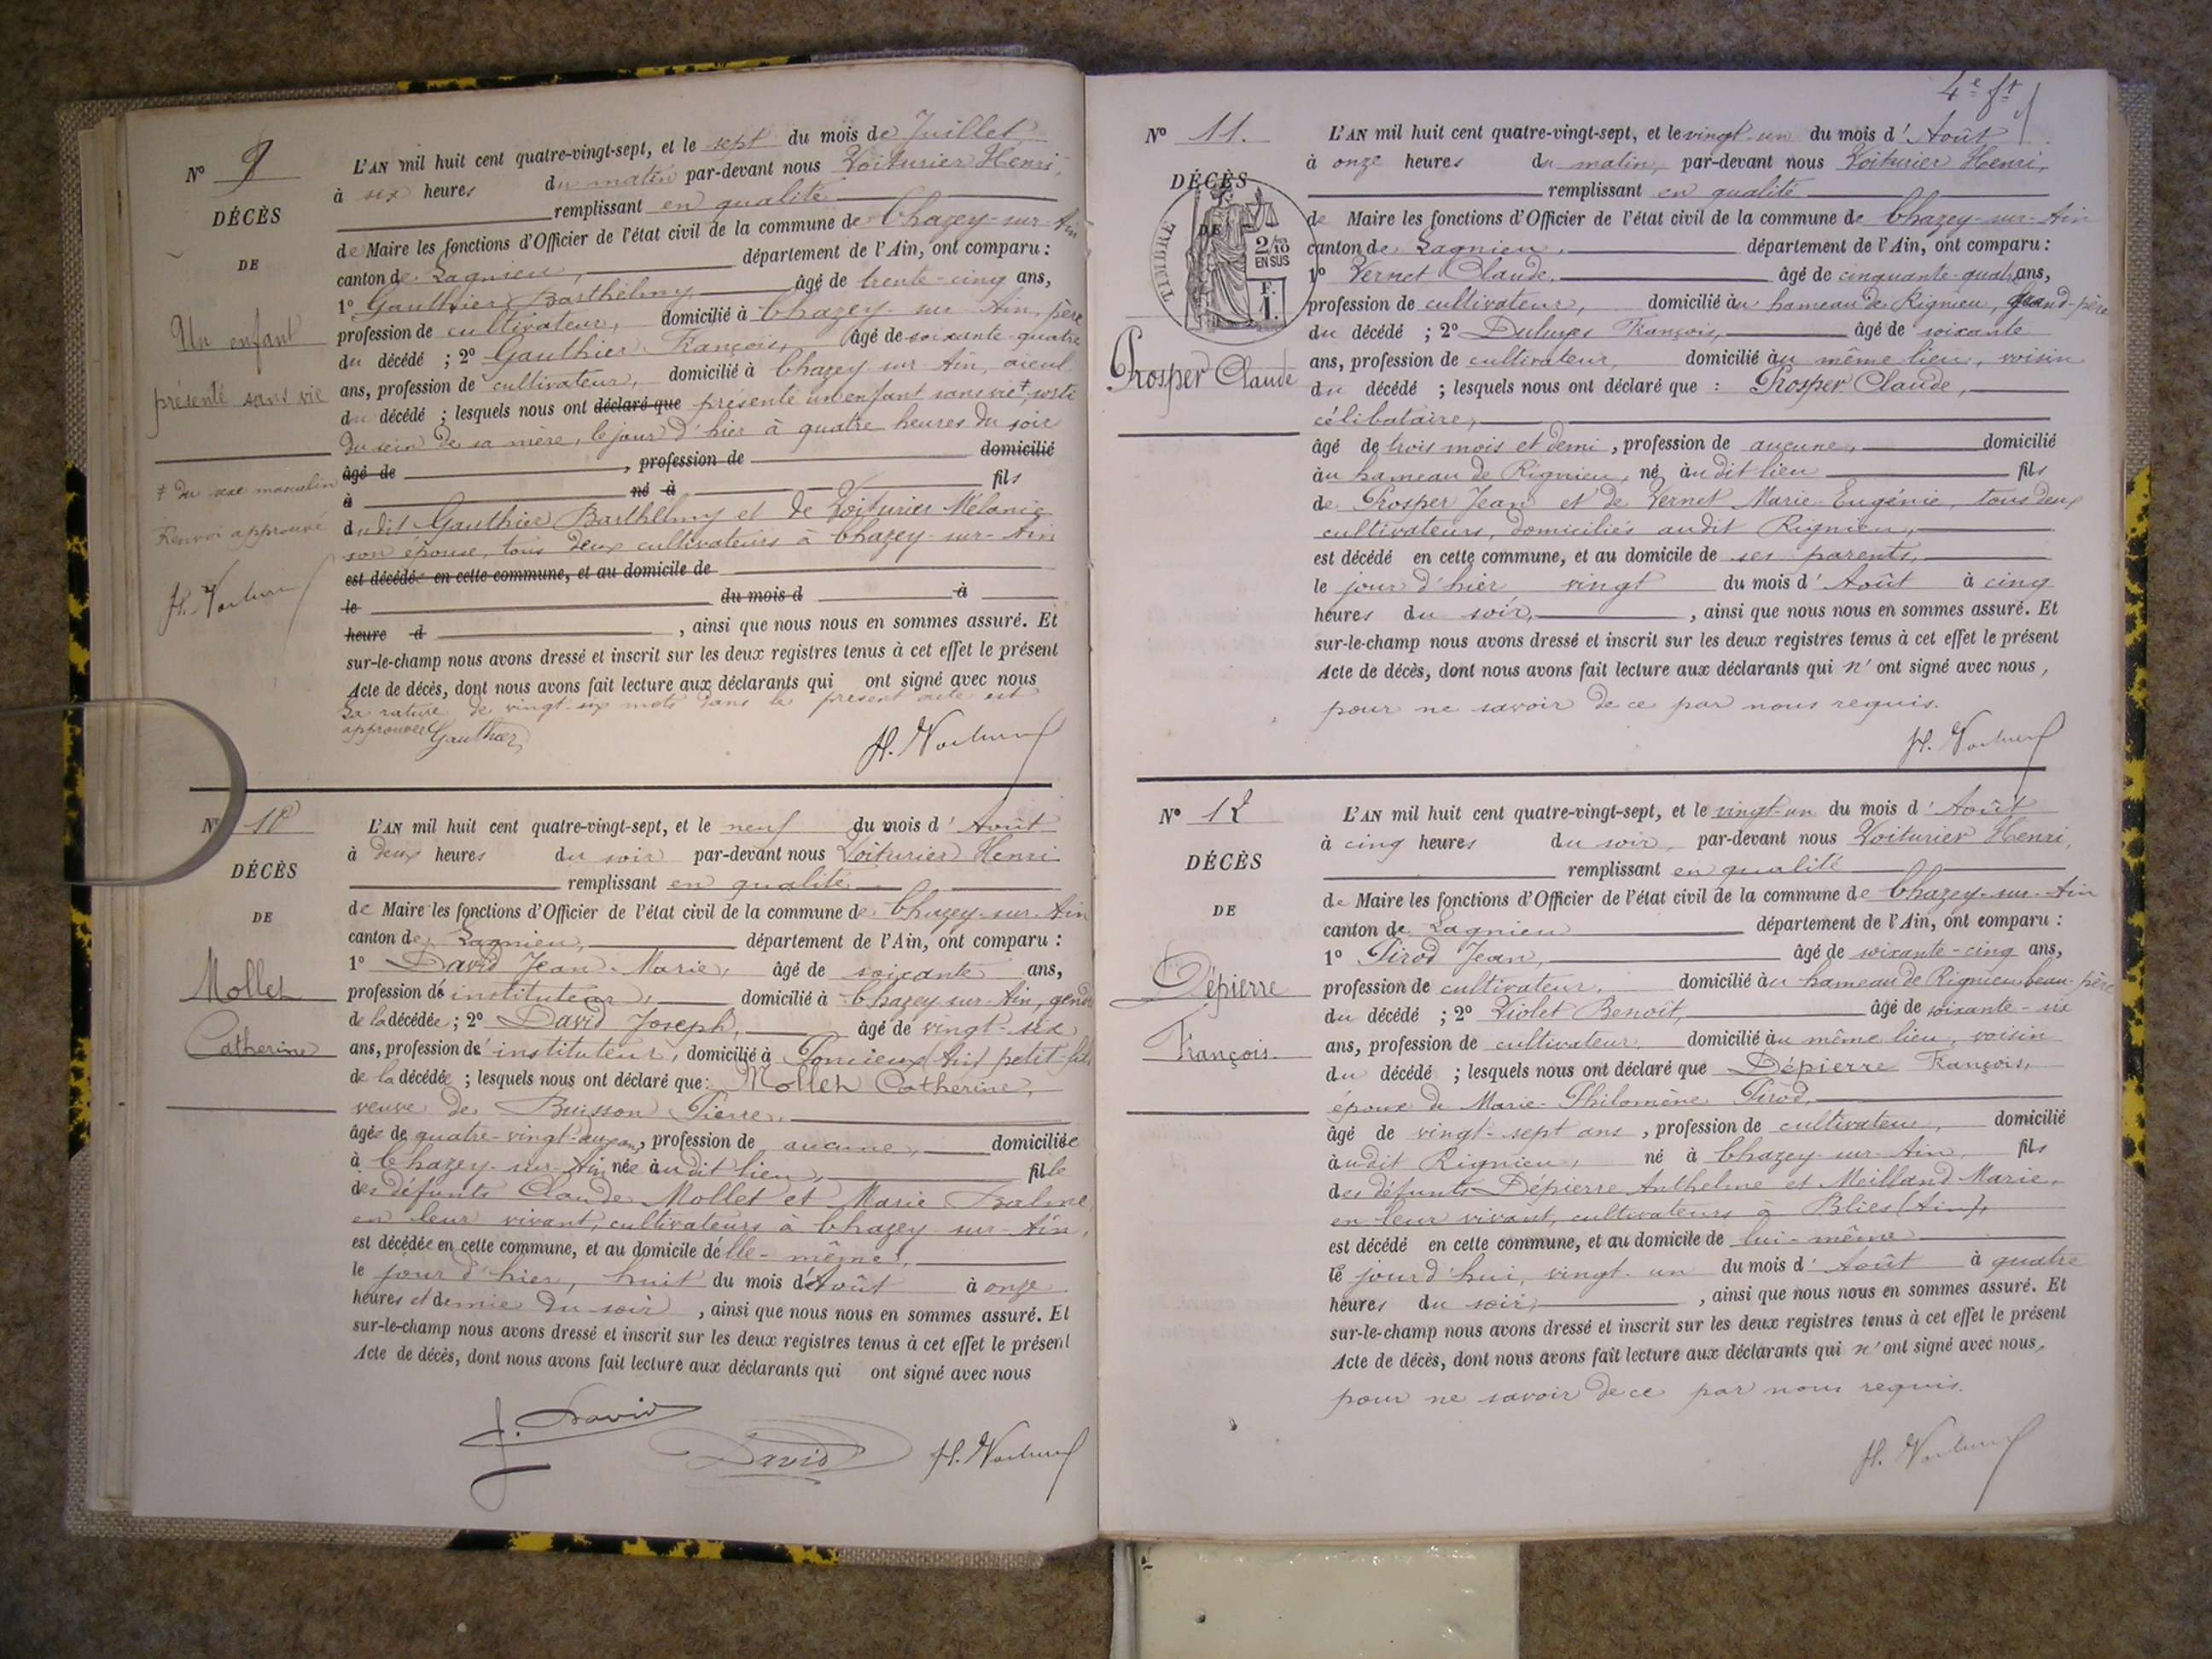 Nº 9
DÉCÈS
DE
Un enfant
présenté sans vie
‡ du sexe masculin
Renvoi approuvé
H. Voiturier
L'AN mil huit cent quatre-vingt-sept, et le sept du mois de Juillet
à six heures du matin par-devant nous Voiturier Henri,
remplissant en qualité
de Maire les fonctions d'Officier de l'état civil de la commune de Chazey-sur-Ain
canton de Lagnieu, département de l'Ain, ont comparu :
1º Gauthier Barthélmy âgé de trente-cinq ans,
profession de cultivateur, domicilié à Chazey-sur-Ain, père
du décédé ; 2º Gauthier François, âgé de soixante-quatre
ans, profession de cultivateur, domicilié à Chazey-sur-Ain, aïeul
du décédé ; lesquels nous ont déclaré que présenté un enfant sans vie ‡, sorti
du sein de sa mère, le jour d'hier à quatre heures du soir
âgé de , profession de domicilié
à né à fils
dudit Gauthier Barthélmy et de Voiturier Mélanie
son épouse, tous deux cultivateurs à Chazey-sur-Ain
est décédé en cette commune, et au domicile de
le du mois d à
heure d , ainsi que nous nous en sommes assuré. Et
sur-le-champ nous avons dressé et inscrit sur les deux registres tenus à cet effet le présent
Acte de décès, dont nous avons fait lecture aux déclarants qui ont signé avec nous
La rature de vingt-six mots dans le présent acte est
approuvée Gauthier
H. Voiturier
Nº 10
DÉCÈS
DE
Mollet
Catherine
L'AN mil huit cent quatre-vingt-sept, et le neuf du mois d'Août
à deux heures du soir par-devant nous Voiturier Henri
remplissant en qualité
de Maire les fonctions d'Officier de l'état civil de la commune de Chazey-sur-Ain
canton de Lagnieu, département de l'Ain, ont comparu :
1º David Jean-Marie, âgé de soixante ans,
profession d'instituteur, domicilié à Chazey-sur-Ain, gendre
de la décédée ; 2º David Joseph, âgé de vingt-six
ans, profession d'instituteur, domicilié à Poncieux (Ain) petit-fils
de la décédée ; lesquels nous ont déclaré que : Mollet Catherine,
veuve de Buisson Pierre,
âgée de quatre-vingt ans, profession de aucune, domiciliée
à Chazey-sur-Ain née audit lieu, fille
des défunts Claude Mollet et Marie Balme,
en leur vivant, cultivateurs à Chazey-sur-Ain,
est décédée en cette commune, et au domicile d'elle-même,
le jour d'hier, huit du mois d'Août à onze
heures et demie du soir , ainsi que nous nous en sommes assuré. Et
sur-le-champ nous avons dressé et inscrit sur les deux registres tenus à cet effet le présent
Acte de décès, dont nous avons fait lecture aux déclarants qui ont signé avec nous
J. David
David H. Voiturier
4e ft
Nº 11.
DÉCÈS
DE
TIMBRE
2/10
EN SUS
F.
1.
Prosper Claude
L'AN mil huit cent quatre-vingt-sept, et le vingt-un du mois d'Août
à onze heures du matin, par-devant nous Voiturier Henri,
remplissant en qualité
de Maire les fonctions d'Officier de l'état civil de la commune de Chazey-sur-Ain
canton de Lagnieu, département de l'Ain, ont comparu :
1º Vernet Claude, âgé de cinquante-quatre ans,
profession de cultivateur, domicilié au hameau de Rignieu, grand-père
du décédé ; 2º François, âgé de soixante
ans, profession de cultivateur, domicilié au même lieu, voisin
du décédé ; lesquels nous ont déclaré que : Prosper Claude,
célibataire,
âgé de trois mois et demi, profession de aucune, domicilié
au hameau de Rignieu, né audit lieu fils
de Prosper Jean et de Vernet Marie-Eugénie, tous deux
cultivateurs, domiciliés audit Rignieu,
est décédé en cette commune, et au domicile de ses parents,
le jour d'hier vingt du mois d'Août à cinq
heures du soir, , ainsi que nous nous en sommes assuré. Et
sur-le-champ nous avons dressé et inscrit sur les deux registres tenus à cet effet le présent
Acte de décès, dont nous avons fait lecture aux déclarants qui n'ont signé avec nous,
pour ne savoir de ce par nous requis.
H. Voiturier
Nº 12
DÉCÈS
DE
Dépierre
François
L'AN mil huit cent quatre-vingt-sept, et le vingt-un du mois d'Août
à cinq heures du soir, par-devant nous Voiturier Henri,
remplissant en qualité
de Maire les fonctions d'Officier de l'état civil de la commune de Chazey-sur-Ain
canton de Lagnieu département de l'Ain, ont comparu :
1º Pirod Jean, âgé de soixante-cinq ans,
profession de cultivateur, domicilié au hameau de Rignieu beau-père
du décédé ; 2º Violet Benoît, âgé de soixante-six
ans, profession de cultivateur, domicilié au même lieu, voisin
du décédé ; lesquels nous ont déclaré que Dépierre François,
époux de Marie-Philomène Pirod,
âgé de vingt-sept ans, profession de cultivateur, domicilié
audit Rignieu, né à Chazey-sur-Ain, fils
des défunts Dépierre Anthelme et Meilland Marie,
en leur vivant, cultivateurs à Blies (Ain),
est décédé en cette commune, et au domicile de lui-même
le jour d'hui, vingt-un du mois d'Août à quatre
heures du soir, , ainsi que nous nous en sommes assuré. Et
sur-le-champ nous avons dressé et inscrit sur les deux registres tenus à cet effet le présent
Acte de décès, dont nous avons fait lecture aux déclarants qui n'ont signé avec nous,
pour ne savoir de ce par nous requis.
H. Voiturier